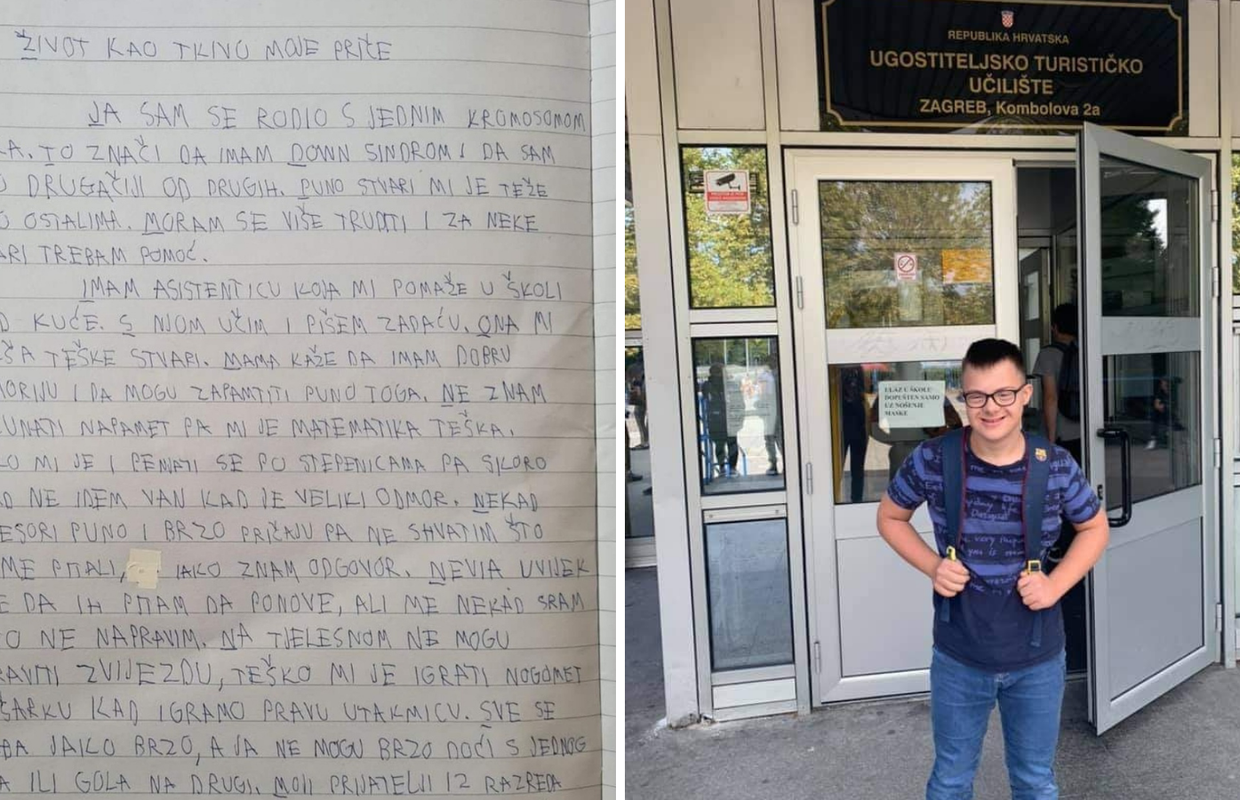 ŽIVOT KAO TKIVO MOJE PRIČE
JA SAM SE RODIO S JEDNIM KROMOSOMOM
TO ZNAČI DA IMAM DOWN SINDROM I DA SAM
DRUGAČIJI OD DRUGIH. PUNO STVARI MI JE TEŽE
OSTALIMA. MORAM SE VIŠE TRUDITI I ZA NEKE
TREBAM POMOĆ.
IMAM ASISTENTICU KOJA MI POMAŽE U ŠKOLI
KUĆE. S NJOM UČIM I PIŠEM ZADAĆU. ONA MI
TEŠKE STVARI. MAMA KAŽE DA IMAM DOBRU
I DA MOGU ZAPAMTIT PUNO TOGA. NE ZNAM
NAPAMET PA MI JE MATEMATIKA TEŠKA.
MI JE I PENJATI SE PO STEPENICAMA PA SKORO
NE IDEM VAN KAD JE VELIKI ODMOR. NEKAD
PUNO I BRZO PRIČAJU PA NE SHVATIM ŠTO
ME PITALI, IAKO ZNAM ODGOVOR. NEVIA UVIJEK
DA IH PITAM DA PONOVE, ALI ME NEKAD SRAM
NE NAPRAVIM. NA TJELESNOM NE MOGU
ZVIJEZDU, TEŠKO MI JE IGRATI NOGOMET
KAD IGRAMO PRAVU UTAKMICU. SVE SE
JAKO BRZO, A JA NE MOGU BRZO DOĆI S JEDNOG
ILI GOLA NA DRUGI. MOJI PRIJATELJI IZ RAZREDA
REPUBLIKA HRVATSKA
UGOSTITELJSKO TURISTIČKO
UČILIŠTE
ZAGREB, Kombolova 2a
ULAZ U ŠKOLU
DOPUŠTEN SAMO
UZ NOŠENJE
MASKE